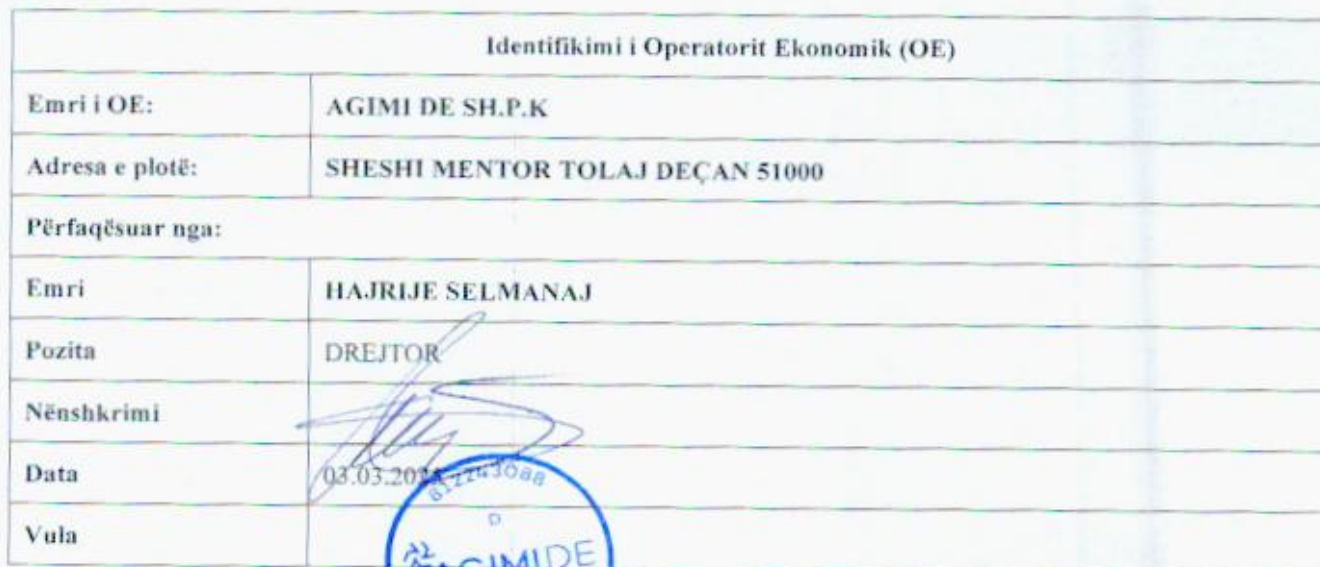 Identifikimi i Operatorit Ekonomik (OE)
Emri i OE: AGIMI DE SH.P.K
Adresa e plotë: SHESHI MENTOR TOLAJ DEÇAN 51000
Përfaqësuar nga:
Emri HAJRIJE SELMANAJ
Pozita DREJTOR
Nënshkrimi
Data 03.03.
812243088
Vula
D
AGIMIDE